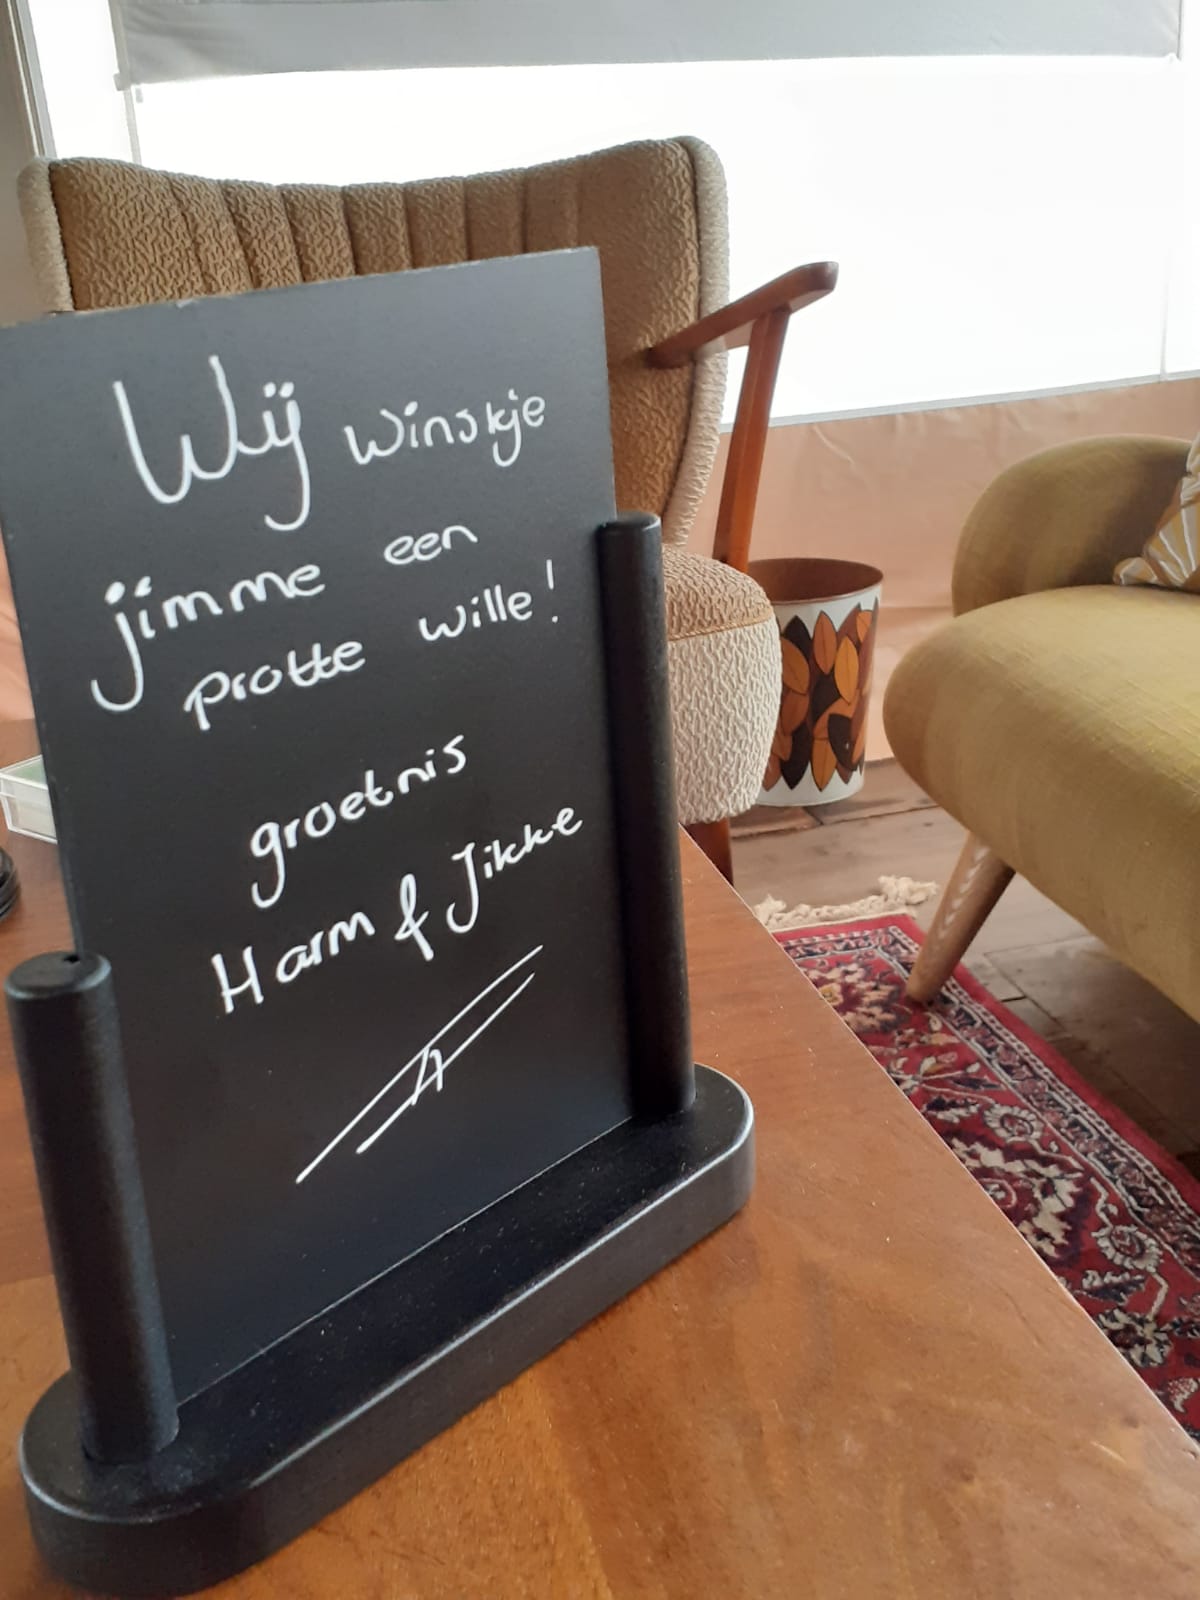 Wij winskje
jimme een
protte wille!
groetnis
Harm & Jikke